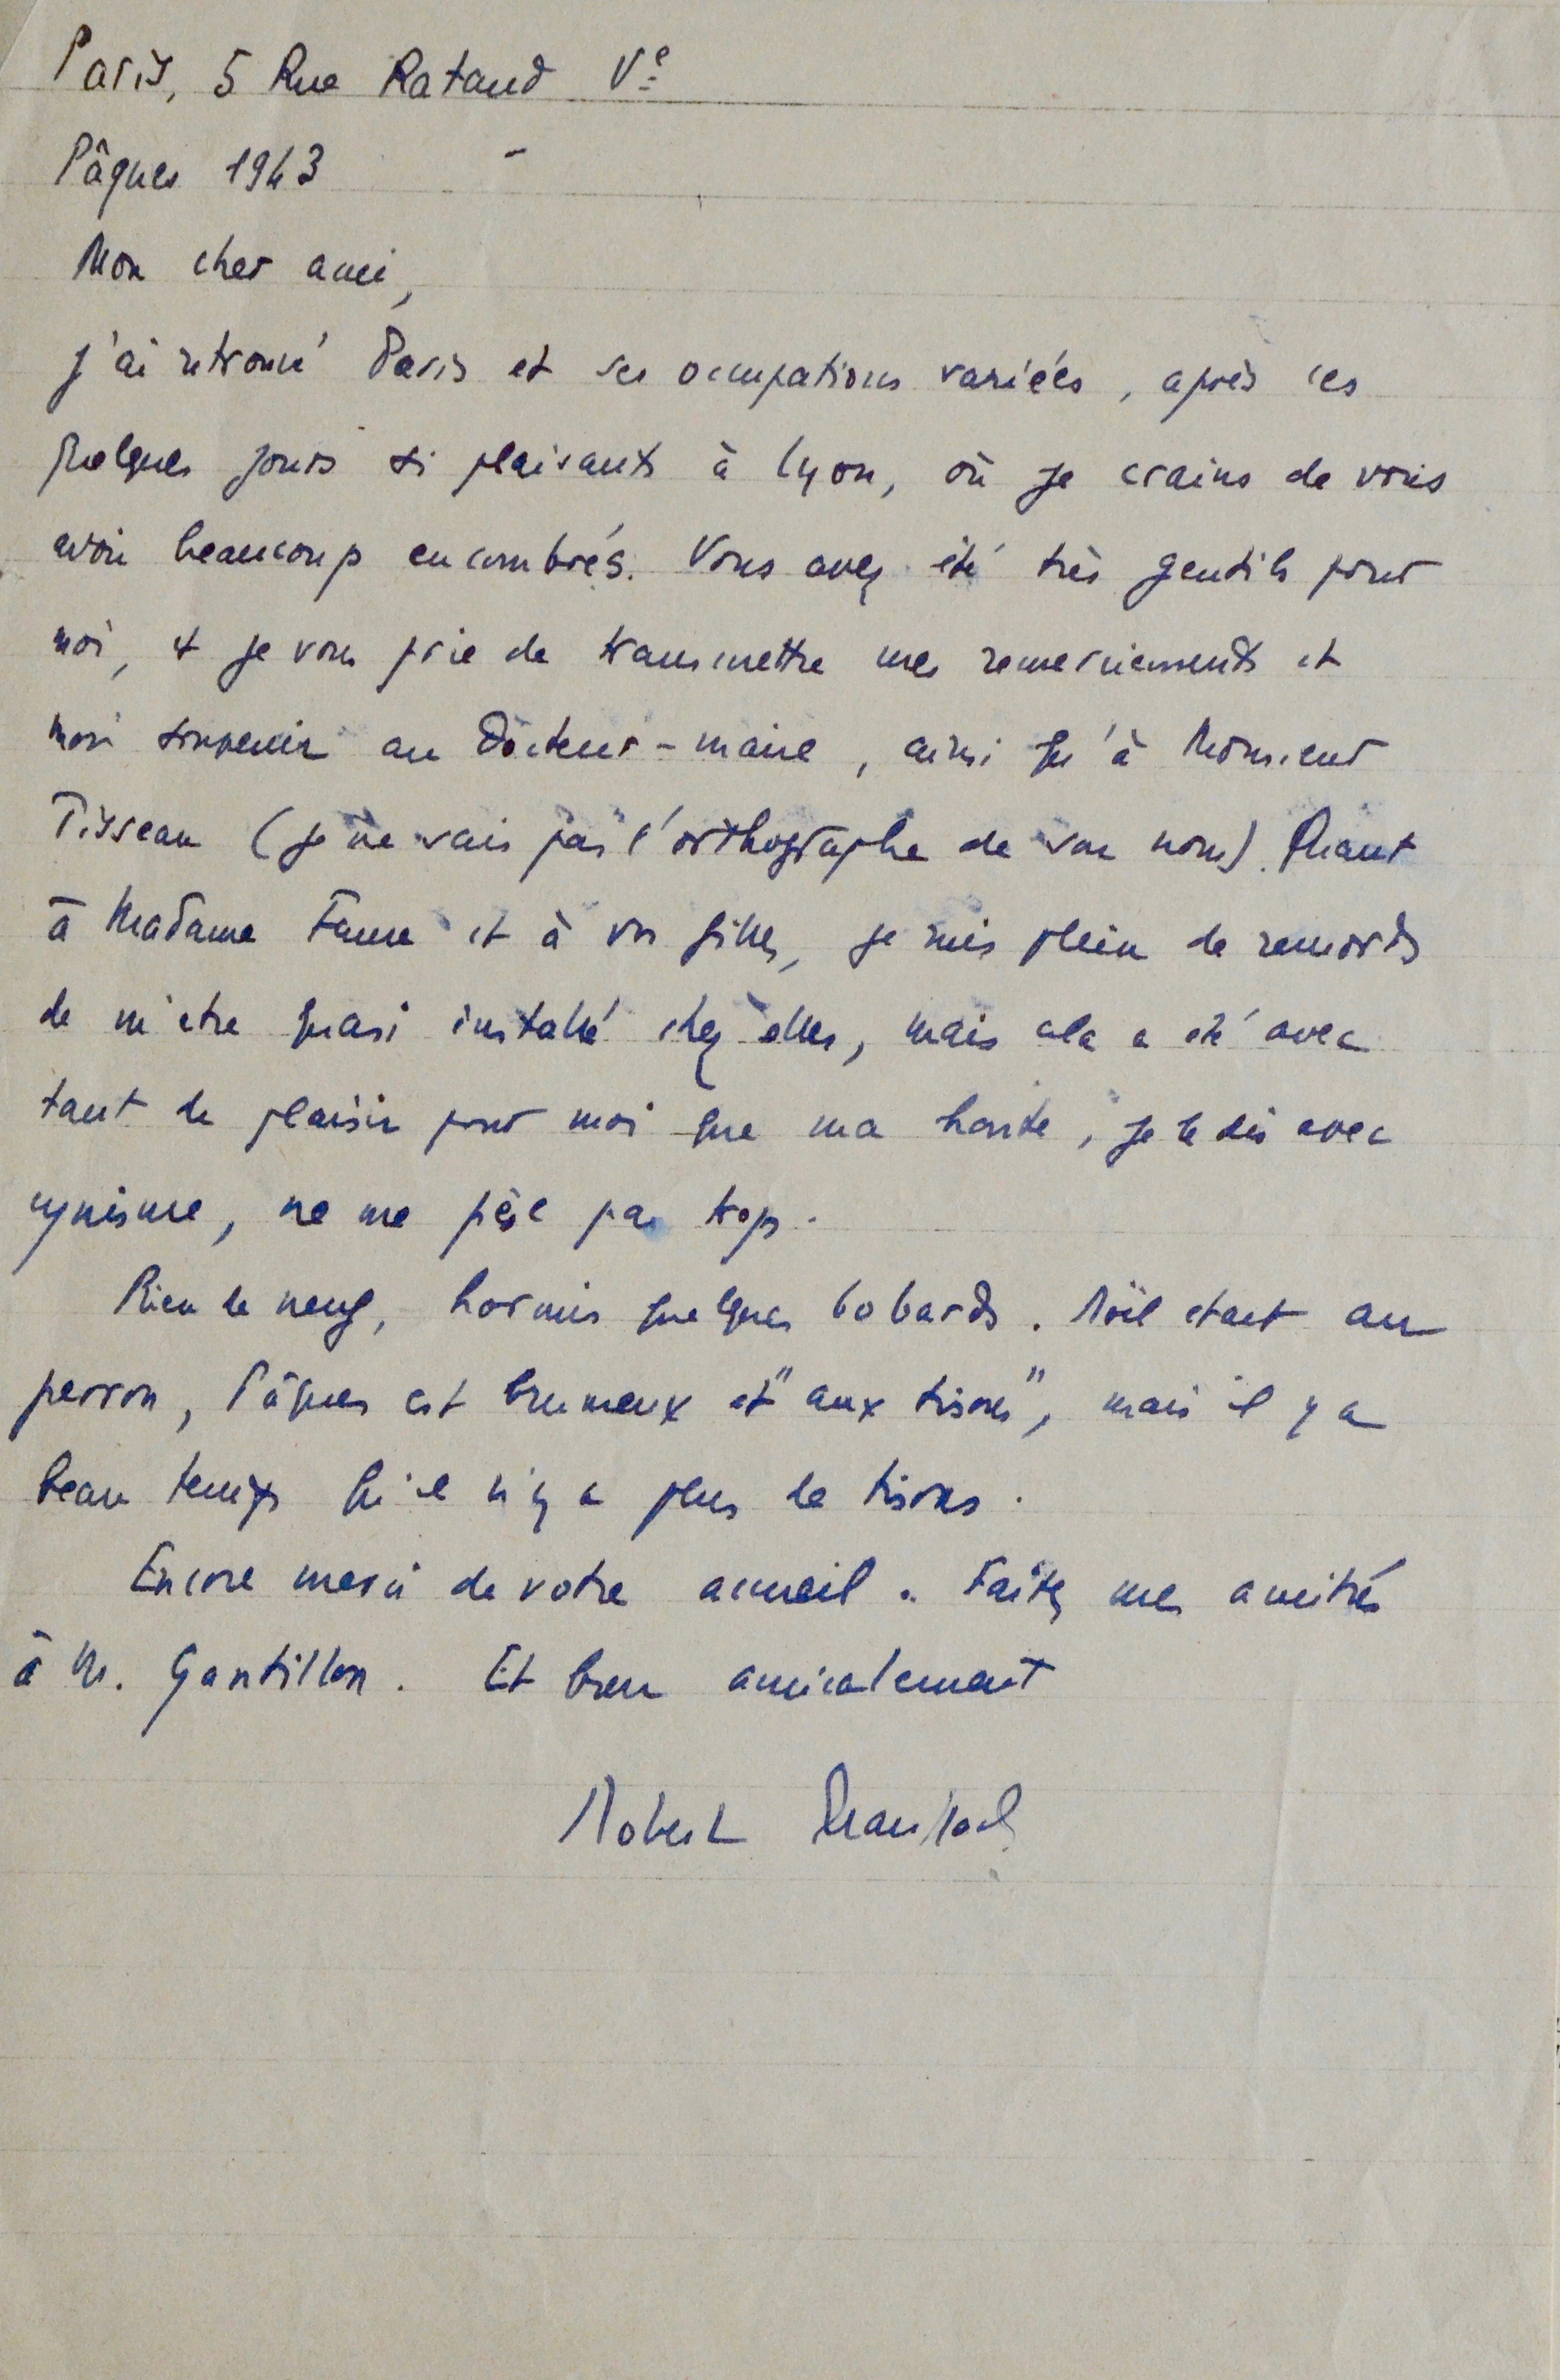 Paris, 5 Rue Rataud Ve
Pâques 1943
Mon cher ami,
J'ai retrouvé Paris et ses occupations variées, après ces
quelques jours si plaisants à Lyon, où je crains de vous
avoir beaucoup encombrés. Vous avez été très gentils pour
moi, et je vous prie de transmettre mes remerciements et
mon souvenir au Docteur-maire, ainsi qu'à Monsieur
Tisseau (je ne sais pas l'orthographe de son nom). Quant
à Madame Faure et à vos filles, je suis plein de remords
de m'etre quasi installé chez elles, mais cela a été avec
tant de plaisir pour moi que ma honte, je le dis avec
cynisme, ne me pèse pas trop.
Rien de neuf, hormis quelques bobards. Noël etait au
perron, Pâques est brumeux et "aux tisons", mais il y a
beau temps qu'il n'y a plus de tisons.
Encore merci de votre accueil. Faites mes amitiés
à M. Gantillon. Et bien amicalement
Robert